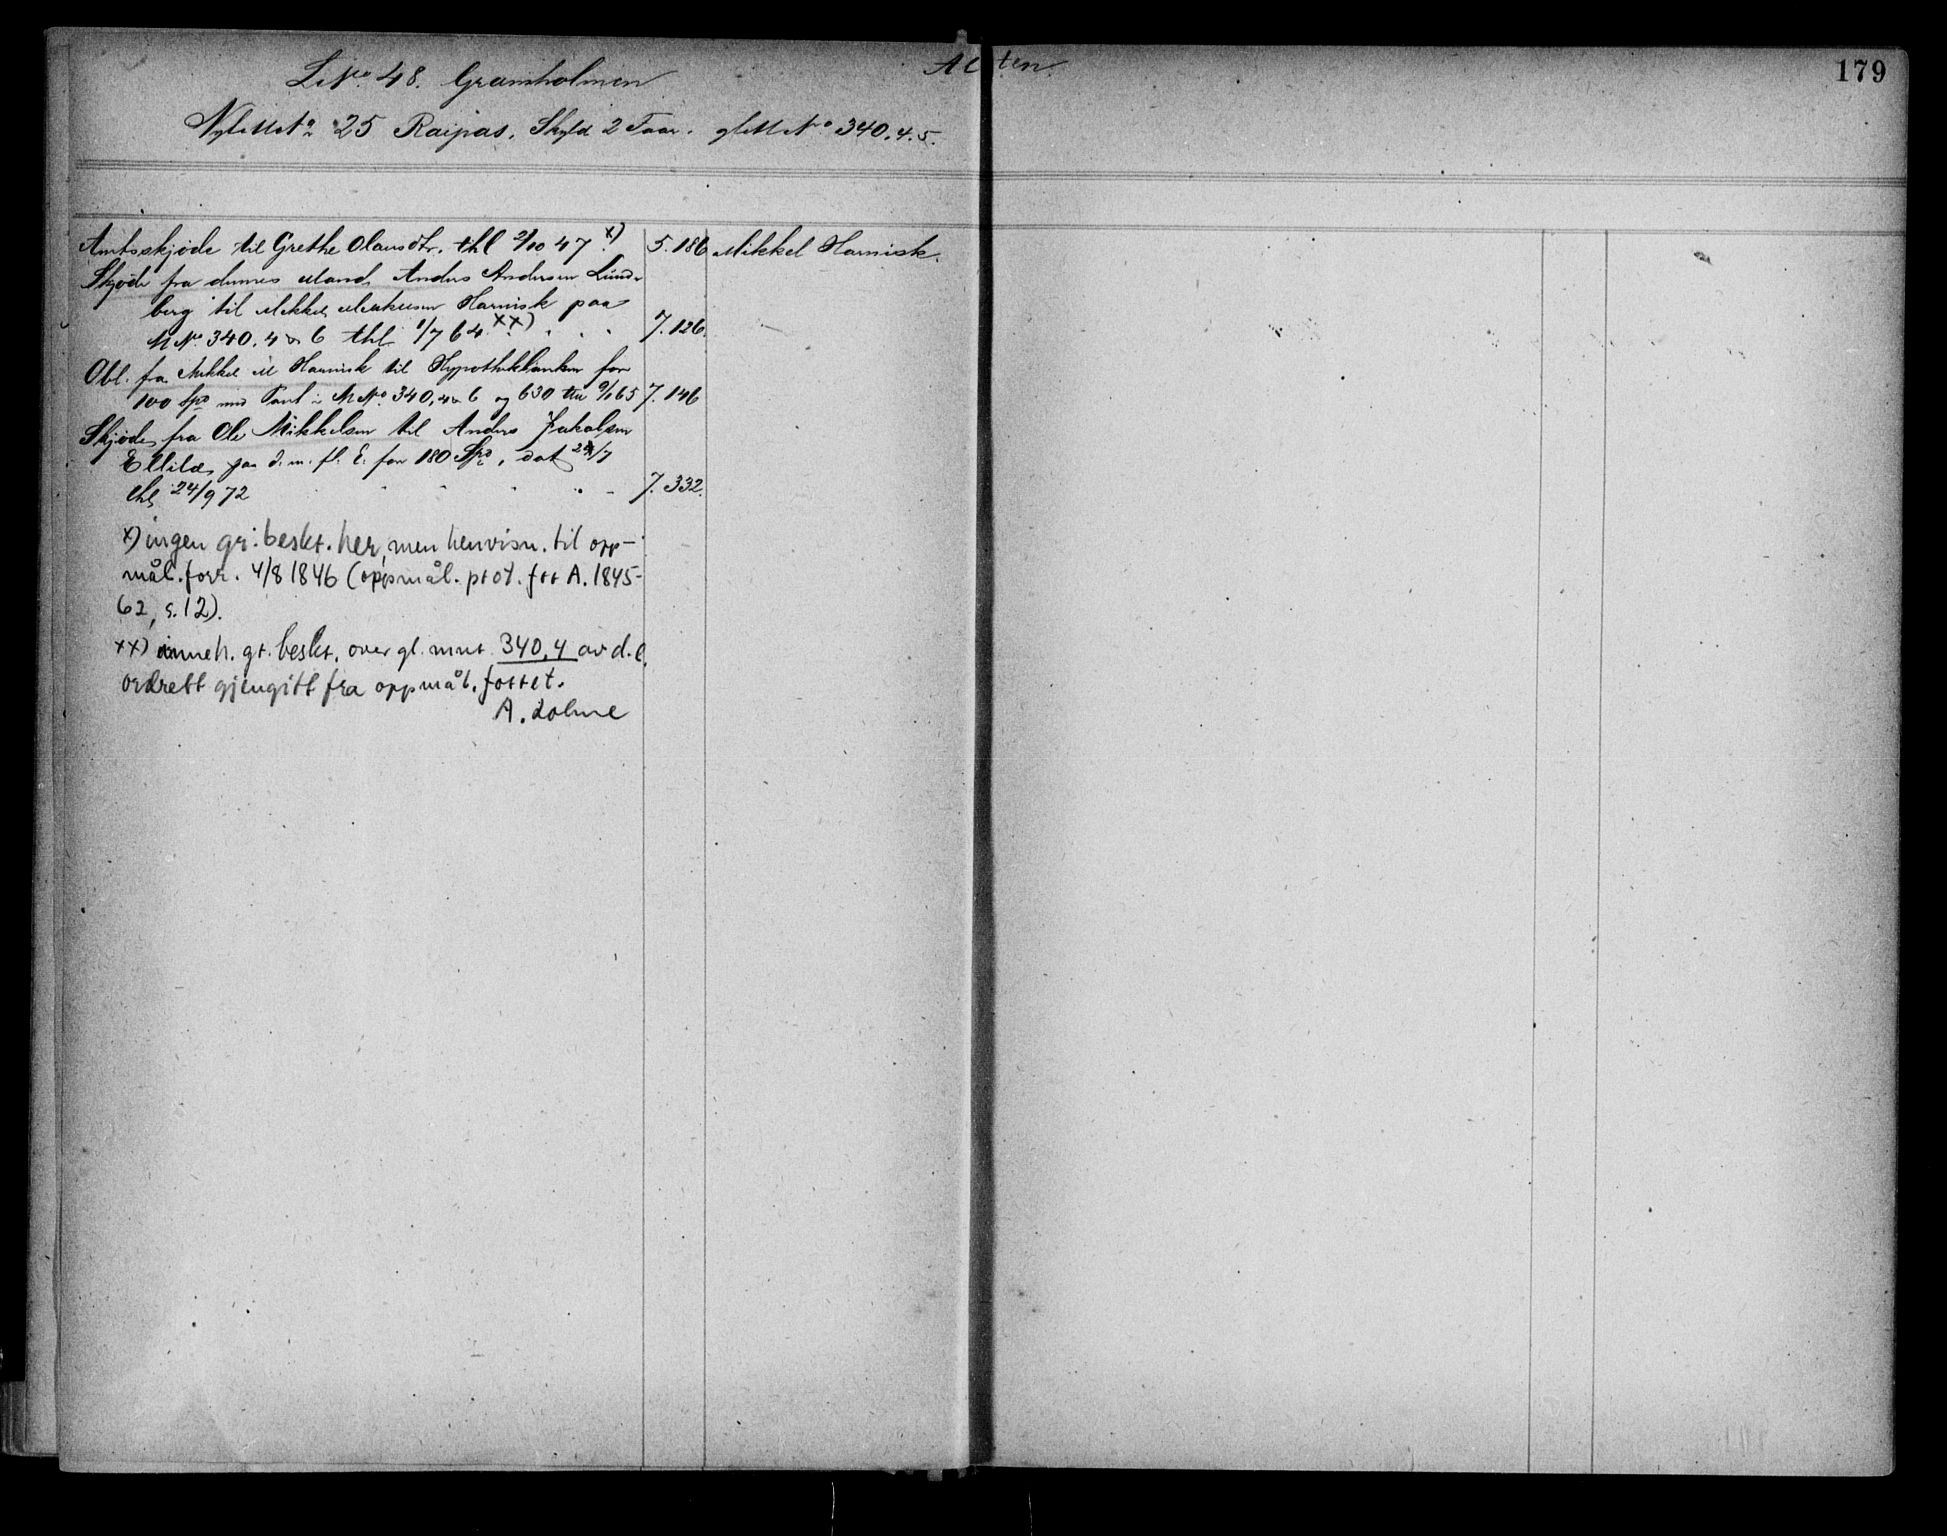 L. No. 48. Gramholmen
Alten.
179
Ny Matr. No. 25 Raipas. Skyld 2 Faar. gl. M. No. 340.4.5.
Amtsskjøde til Grethe Olausdtr. thl 2/10 47 x) 5.186 Mikkel Harnisk.
Skjøde fra dennes Mand, Anders Andersen Lund-
berg til Mikkel Harnisk paa
M No. 340.4 & 6 thl 1/7 64 xx) 7.126.
Obl. fra Mikkel M Harnisk til Hypothekbanken for
100 Spd med Pant i M No. 340, 4 & 6 og 630 7.146
Skjøde fra Ole Mikkelsen til Anders Jakobsen
Ellilä, paa d. m. fl. E. for 180 Spd, dat 24/7
thl 24/9 72 7.332.
x) ingen gr. beskr. her, men henvisn. til opp-
mål.forr. 4/8 1846 (oppmål. prot. for A. 1845-
62, s. 12).
xx) inneh. gr. beskr. over gl. mnr. 340,4 av d. e.
ordrett gjengitt fra oppmål.forret.
A. Dolme